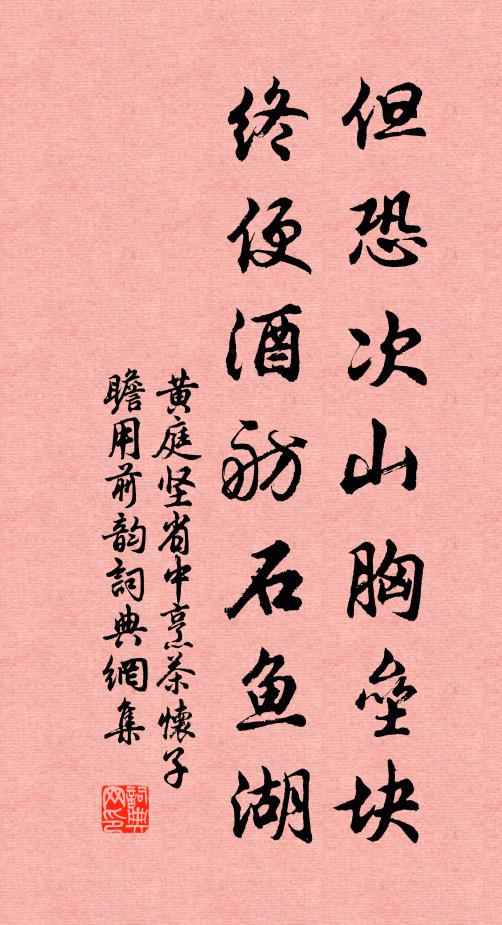 但恐次山胸垒块
终便酒舫石鱼湖
黄庭坚省中烹茶懷子
瞻用前韵詞典網集
詞典网印